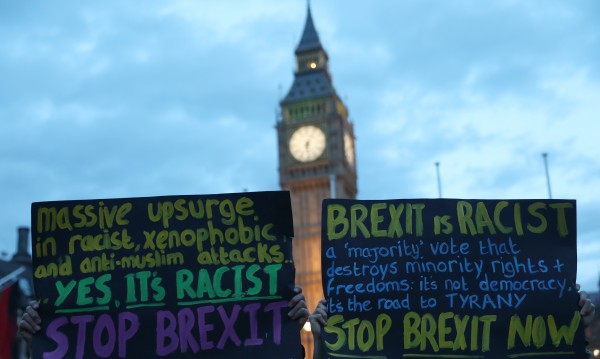 massive upsurge
in racist, xenophobic
and anti-muslim attacks.
YES, IT'S RACIST
STOP BREXIT
BREXIT is RACIST
a 'majority' vote that
destroys minority rights +
freedoms: it's not democracy.
it's the road to TYRANNY
STOP BREXIT NOW